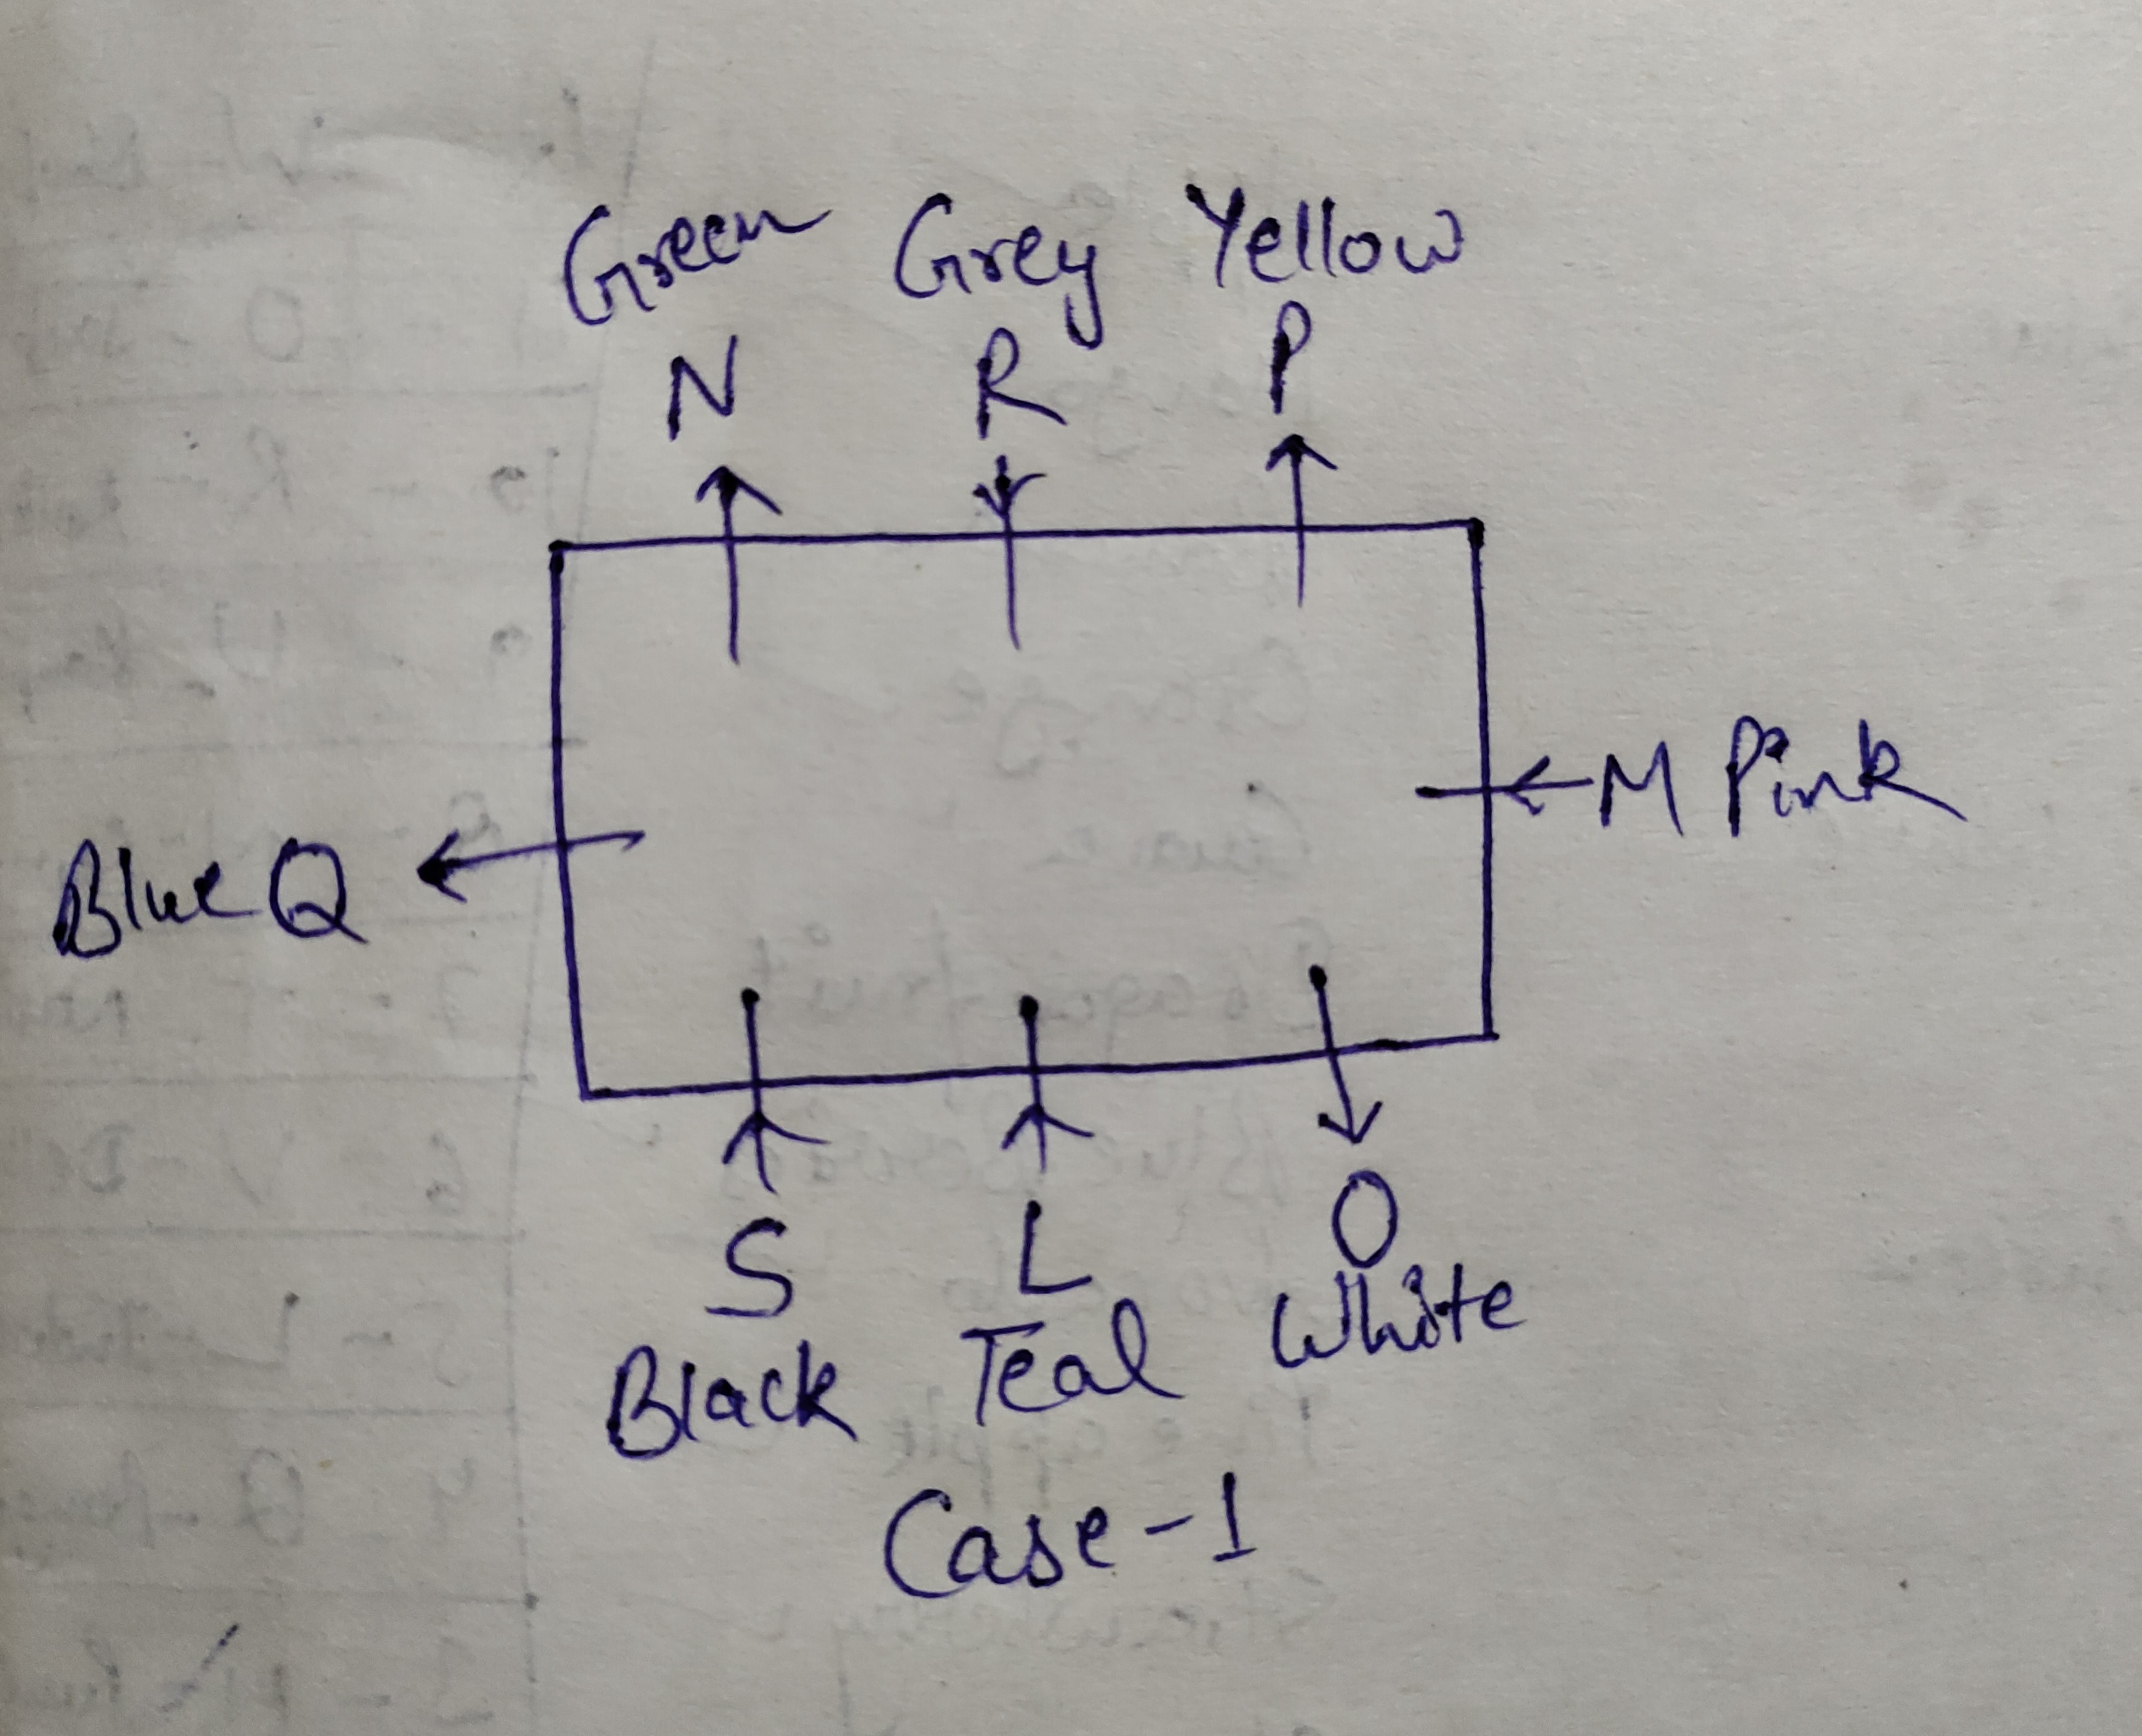 Green Grey Yellow
N R P
M Pink
Blue Q
S L O
Black Teal White
Case-1